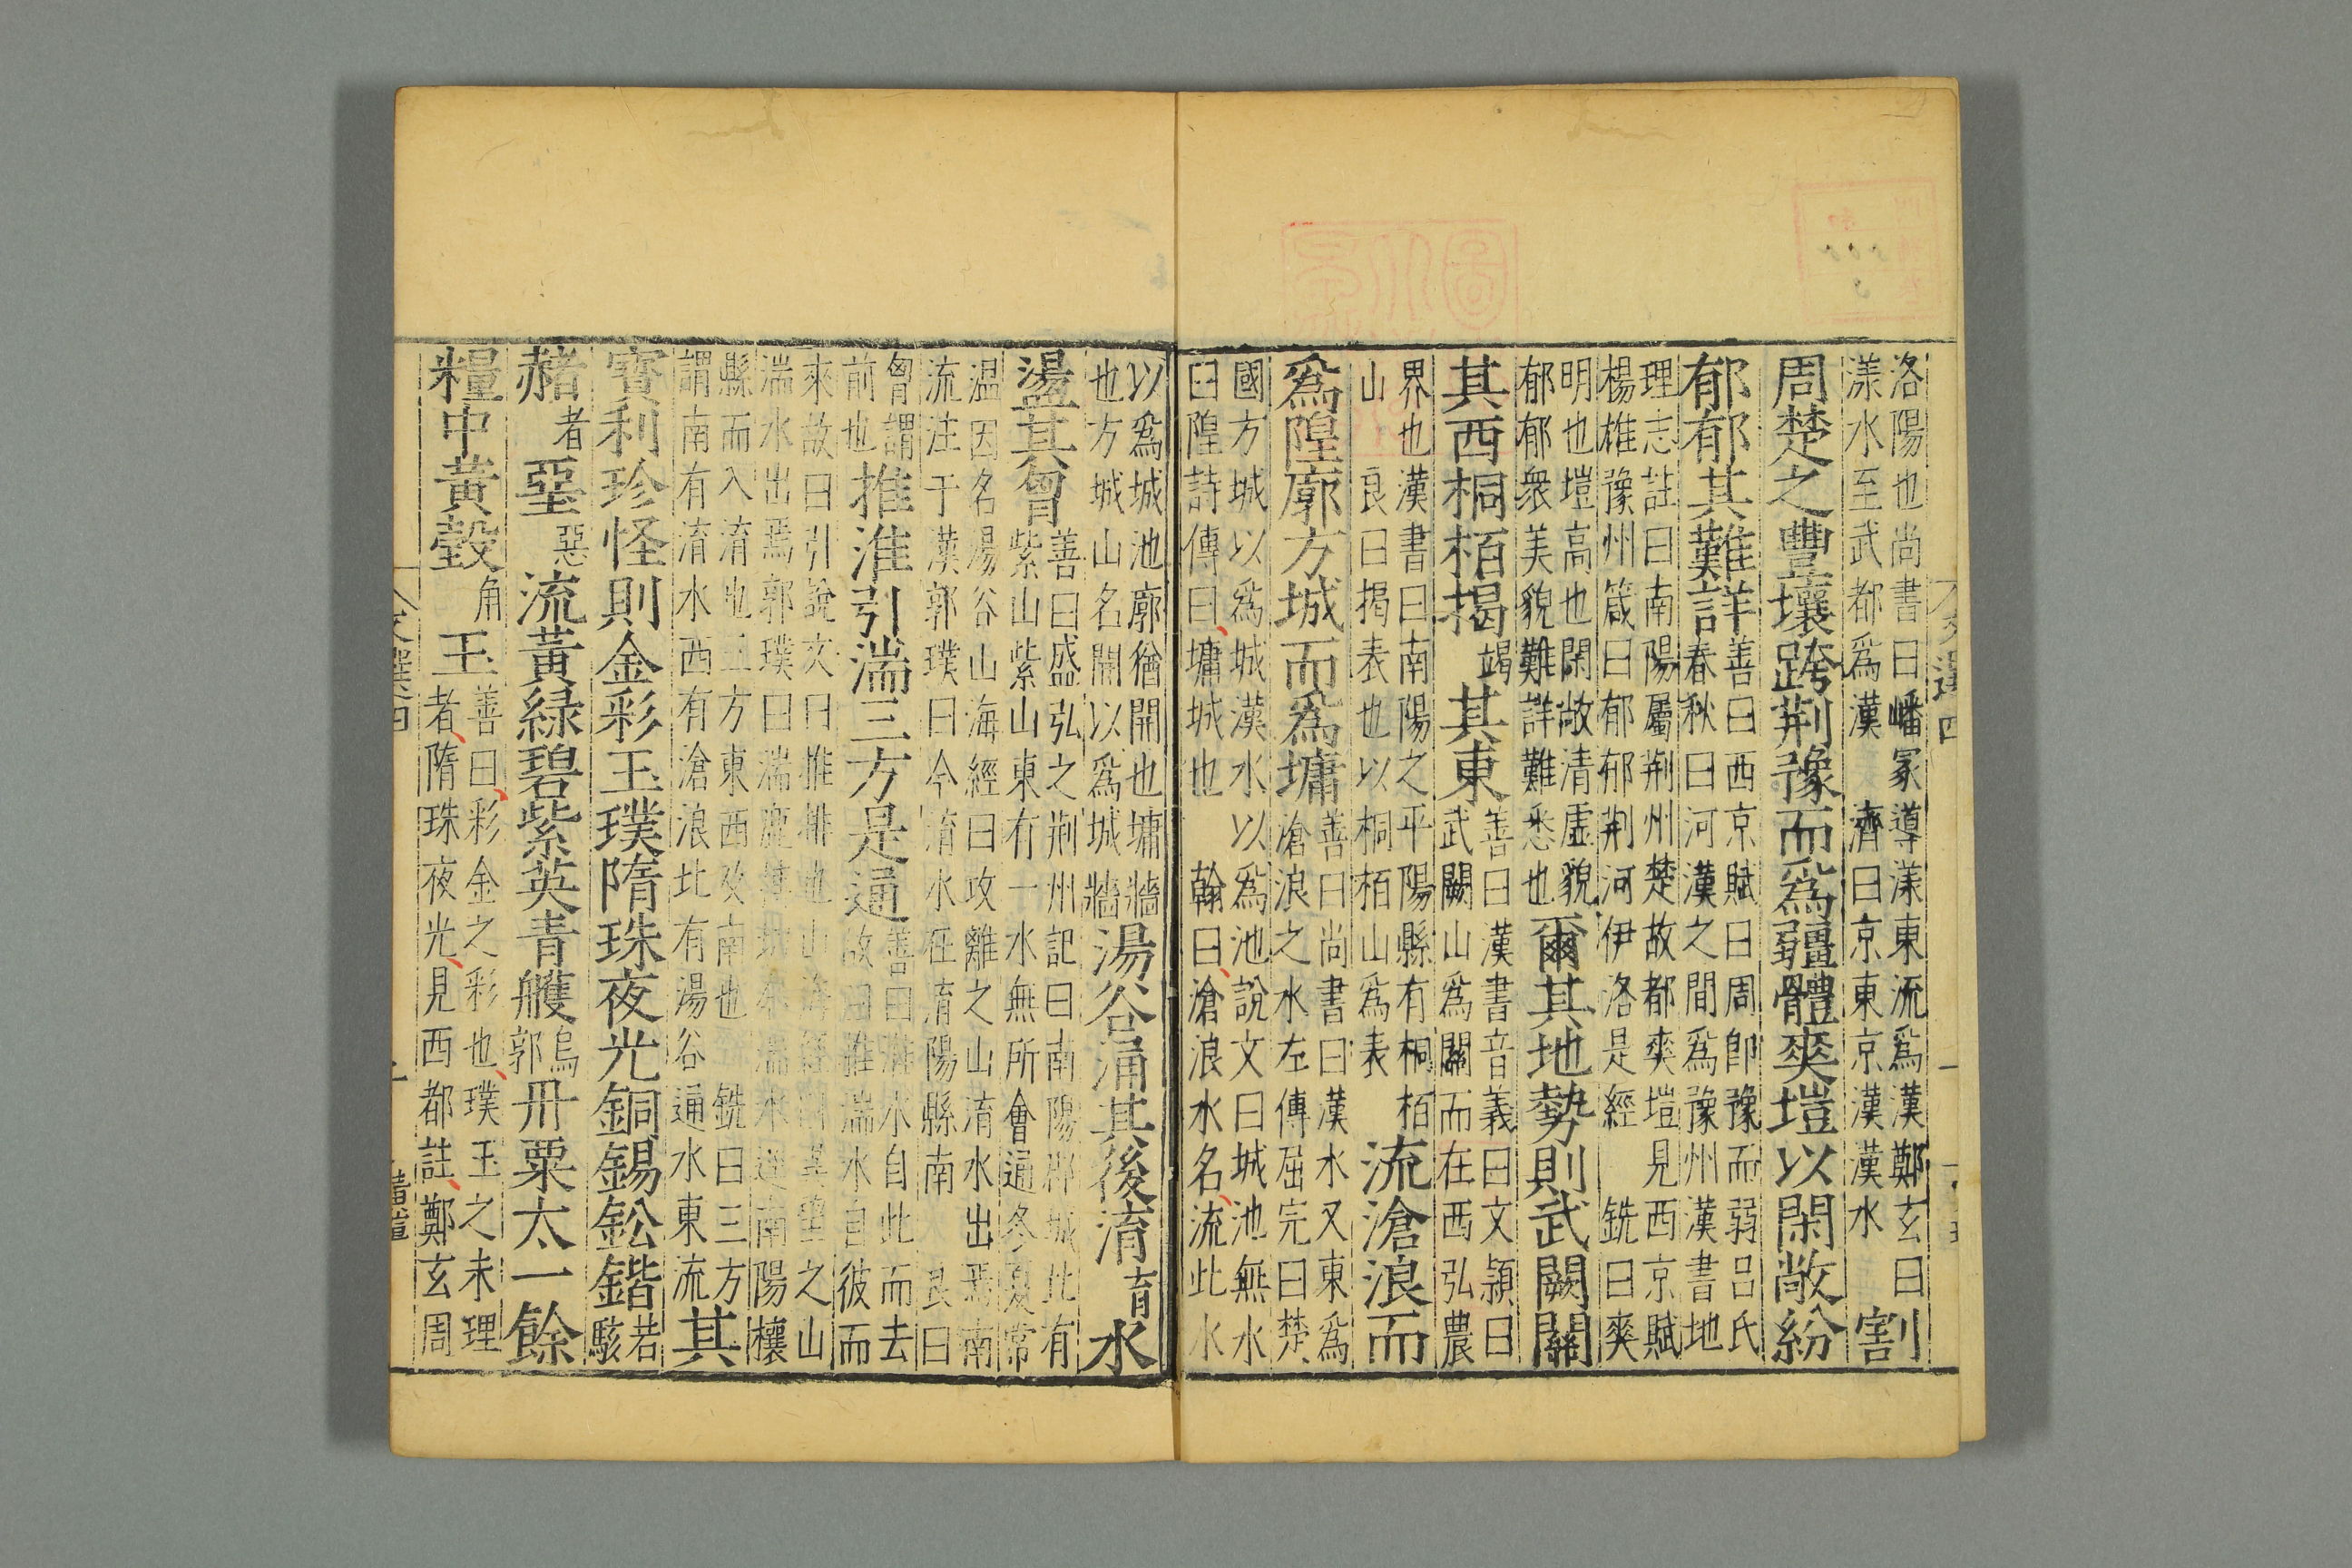 洛陽也尚書曰嶓冢導漾東流爲漢鄭玄曰
漾水至武都爲漢 濟曰京東京漢漢水
割
周楚之豐壤跨荆豫而爲疆體爽塏以閑敞紛
郁郁其難詳
善曰西京賦曰周卽豫而弱呂氏
春秋曰河漢之間爲豫州漢書地
理志註曰南陽屬荆州楚故都爽塏見西京賦
楊雄豫州箴曰郁郁荆河伊洛是經 銑曰爽
明也塏高也閑敞清虛貌
郁郁衆美貌難詳難悉也
爾其地勢則武闕關
其西桐栢揭
竭
其東
善曰漢書音義曰文頴曰
武闕山爲關而在西弘農
界也漢書曰南陽之平陽縣有桐栢
山 良曰揭表也以桐栢山爲表
流滄浪而
爲隍廓方城而爲墉
善曰尚書曰漢水又東爲
滄浪之水左傳屈完曰楚
國方城以爲城漢水以爲池說文曰城池無水
曰隍詩傳曰墉城也 翰曰滄浪水名流此水
以爲城池廓猶開也墉牆
也方城山名開以爲城牆
湯谷涌其後淯
育
水
盪其胷
善曰盛弘之荆州記曰南陽郡城北有
紫山紫山東有一水無所會通冬夏常
温因名湯谷山海經曰攻離之山淯水出焉南
流注于漢郭璞曰今淯水在淯陽縣南 良曰
胷謂
前也
推淮引湍三方是通
善曰淮水自此而去
故曰推湍水自彼而
來故曰引說文曰推排也山海經曰翼望之山
湍水出焉郭璞曰湍鹿摶切 湍水逕南陽穰
縣而入淯也三方東西及南也 銑曰三方
謂南有淯水西有滄浪北有湯谷通水東流
其
寶利珍怪則金彩玉璞隋珠夜光銅錫鉛鍇
若
駭
赭
者
堊
惡
流黃緑碧紫英青雘
烏
郭
丹粟太一餘
糧中黃瑴
角
玉
善曰彩金之彩也璞玉之未理
者隋珠夜光見西都註鄭玄周
文選四